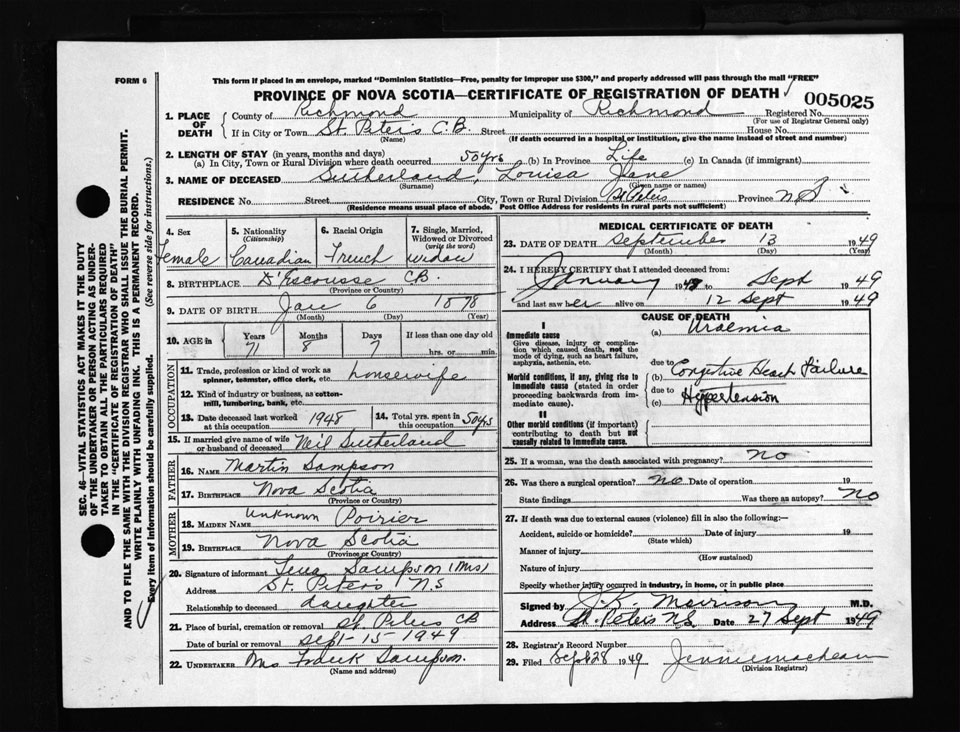 FORM 6
This form if placed in an envelope, marked "Dominion Statistics—Free, penalty for improper use $300," and properly addressed will pass through the mail "FREE"
PROVINCE OF NOVA SCOTIA—CERTIFICATE OF REGISTRATION OF DEATH
005025
1. PLACE OF DEATH County of Richmond Municipality of Richmond Registered No.
(For use of Registrar General only)
If in City or Town St. Peters C.B. Street House No.
(Name) (If death occurred in a hospital or institution, give the name instead of street and number)
2. LENGTH OF STAY (in years, months and days)
(a) In City, Town or Rural Division where death occurred 50 yrs (b) In Province Life (c) In Canada (if immigrant)
3. NAME OF DECEASED Sutherland, Louisa Jane
(Surname) (Given name or names)
RESIDENCE No. Street City, Town or Rural Division St Peters Province N.S
(Residence means usual place of abode. Post Office Address for residents in rural parts not sufficient)
4. Sex Female
5. Nationality (Citizenship) Canadian
6. Racial Origin French
7. Single, Married, Widowed or Divorced (write the word) widow
8. BIRTHPLACE D'Escousse CB.
(Province or Country)
9. DATE OF BIRTH Jan 6 1878
(Month) (Day) (Year)
10. AGE in Years 71 Months 8 Days 7 If less than one day old hrs. or min.
OCCUPATION
11. Trade, profession or kind of work as spinner, teamster, office clerk, etc. housewife
12. Kind of industry or business, as cotton-mill, lumbering, bank, etc.
13. Date deceased last worked at this occupation 1948
14. Total yrs. spent in this occupation 50 yrs
15. If married give name of wife or husband of deceased Neil Sutherland
FATHER
16. NAME Martin Sampson
17. BIRTHPLACE Nova Scotia
(Province or Country)
MOTHER
18. MAIDEN NAME Unknown Poirier
19. BIRTHPLACE Nova Scotia
(Province or Country)
20. Signature of informant Lena Sampson (Mrs)
Address St. Peter's N.S
Relationship to deceased daughter
21. Place of burial, cremation or removal St. Peters CB
Date of burial or removal Sept-15-1949
22. UNDERTAKER Mrs Sampson.
(Name and address)
MEDICAL CERTIFICATE OF DEATH
23. DATE OF DEATH September 13 1949
(Month) (Day) (Year)
24. I HEREBY CERTIFY that I attended deceased from:
January 19 to Sept 1949
and last saw her alive on 12 Sept 1949
CAUSE OF DEATH
I
Immediate cause
Give disease, injury or complication which caused death, not the mode of dying, such as heart failure, asphyxia, asthenia, etc.
(a) Uraemia
due to
Morbid conditions, if any, giving rise to immediate cause (stated in order proceeding backwards from immediate cause).
(b) Congestive Heart Failure
due to
(c) Hypertension
II
Other morbid conditions (if important) contributing to death but not causally related to immediate cause.
25. If a woman, was the death associated with pregnancy? No
26. Was there a surgical operation? No Date of operation 19
State findings Was there an autopsy? No
27. If death was due to external causes (violence) fill in also the following:
Accident, suicide or homicide? Date of injury 19
(State which)
Manner of injury
(How sustained)
Nature of injury
Specify whether injury occurred in industry, in home, or in public place
Signed by J.K. Morrison M.D.
Address St. Peters N.S. Date 27 Sept 1949
28. Registrar's Record Number
29. Filed Sept 28 1949 Jennie
(Division Registrar)
SEC. 46—VITAL STATISTICS ACT MAKES IT THE DUTY
OF THE UNDERTAKER OR PERSON ACTING AS UNDER-
TAKER TO OBTAIN ALL THE PARTICULARS REQUIRED
IN THE "CERTIFICATE OF REGISTRATION OF DEATH"
AND TO FILE THE SAME WITH THE DIVISION REGISTRAR WHO SHALL ISSUE THE BURIAL PERMIT.
WRITE PLAINLY WITH UNFADING INK. THIS IS A PERMANENT RECORD.
Every item of information should be carefully supplied. (See reverse side for instructions.)